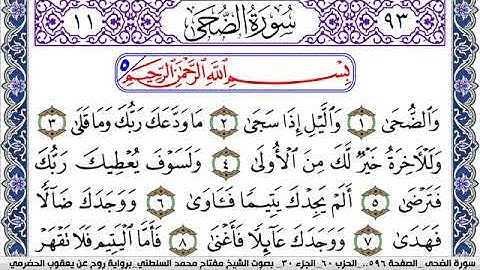 ٩٣ سُورَةُ الضُّحَىٰ ١١
بِسْمِ اللَّهِ الرَّحْمَٰنِ الرَّحِيمِ ٥
وَالضُّحَىٰ ١ وَالَّيْلِ إِذَا سَجَىٰ ٢ مَا وَدَّعَكَ رَبُّكَ وَمَا قَلَىٰ ٣
وَلَلْآخِرَةُ خَيْرٌ لَّكَ مِنَ الْأُولَىٰ ٤ وَلَسَوْفَ يُعْطِيكَ رَبُّكَ
فَتَرْضَىٰ ٥ أَلَمْ يَجِدْكَ يَتِيمًا فَـَٔاوَىٰ ٦ وَوَجَدَكَ ضَآلًّا
فَهَدَىٰ ٧ وَوَجَدَكَ عَآئِلًا فَأَغْنَىٰ ٨ فَأَمَّا الْيَتِيمَ فَلَا تَقْهَرْ
سورة الضحى _الصفحة ٥٩٦_ الحزب ٦٠_الجزء ٣٠_ بصوت الشيخ مفتاح محمد السلطني_برواية روح عن يعقوب الحضرمي